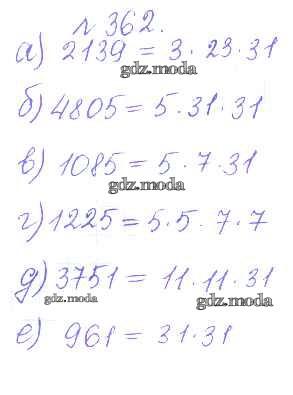 № 362.
а) 2139 = 3 · 23 · 31
gdz.moda
б) 4805 = 5 · 31 · 31
в) 1085 = 5 · 7 · 31
gdz.moda
г) 1225 = 5 · 5 · 7 · 7
д) 3751 = 11 · 11 · 31
gdz.moda gdz.moda
е) 961 = 31 · 31